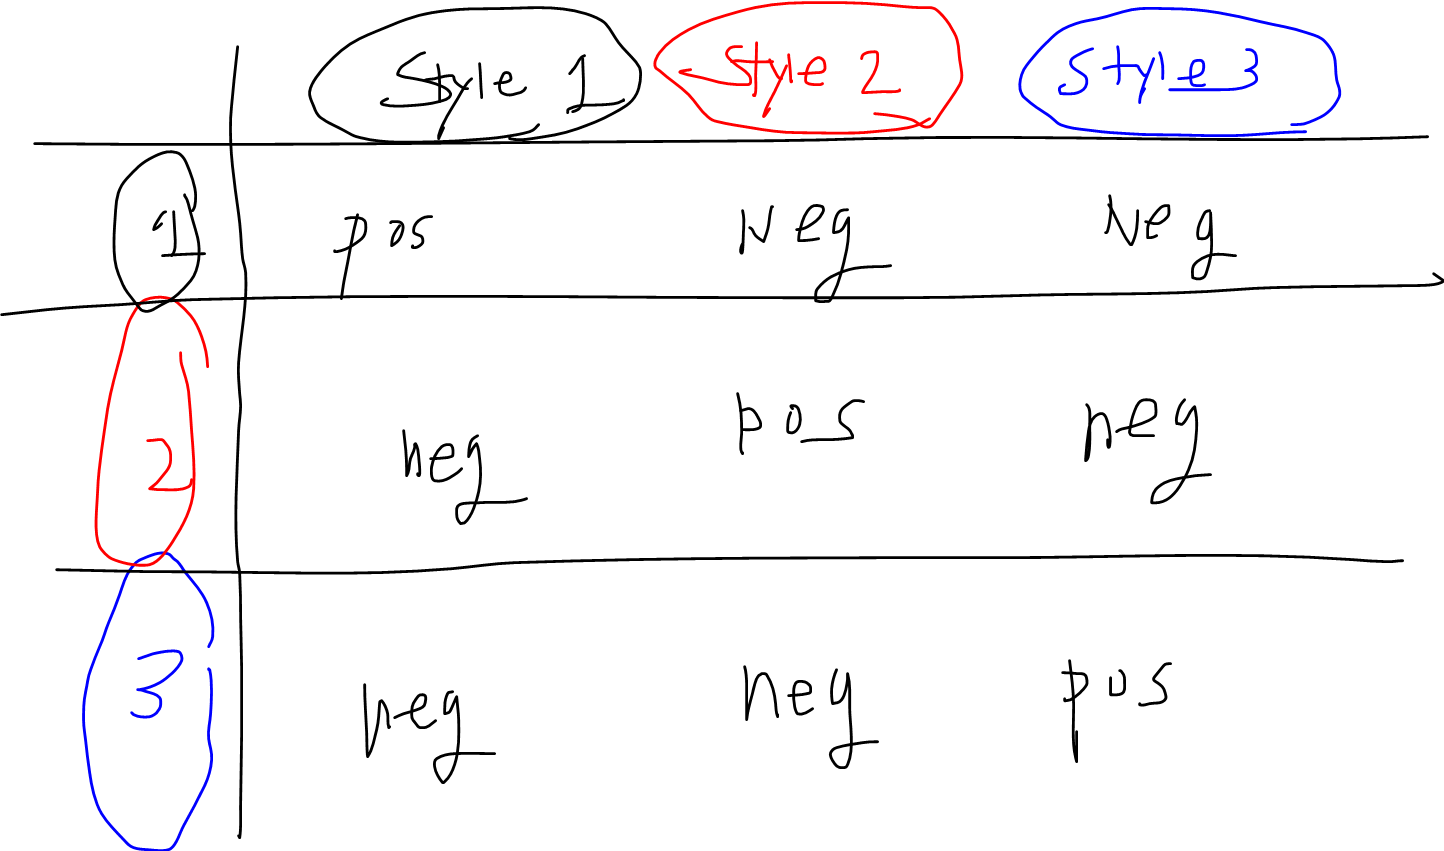 Style 1 Style 2 Style 3
1 pos Neg Neg
2 neg pos neg
3 neg neg pos